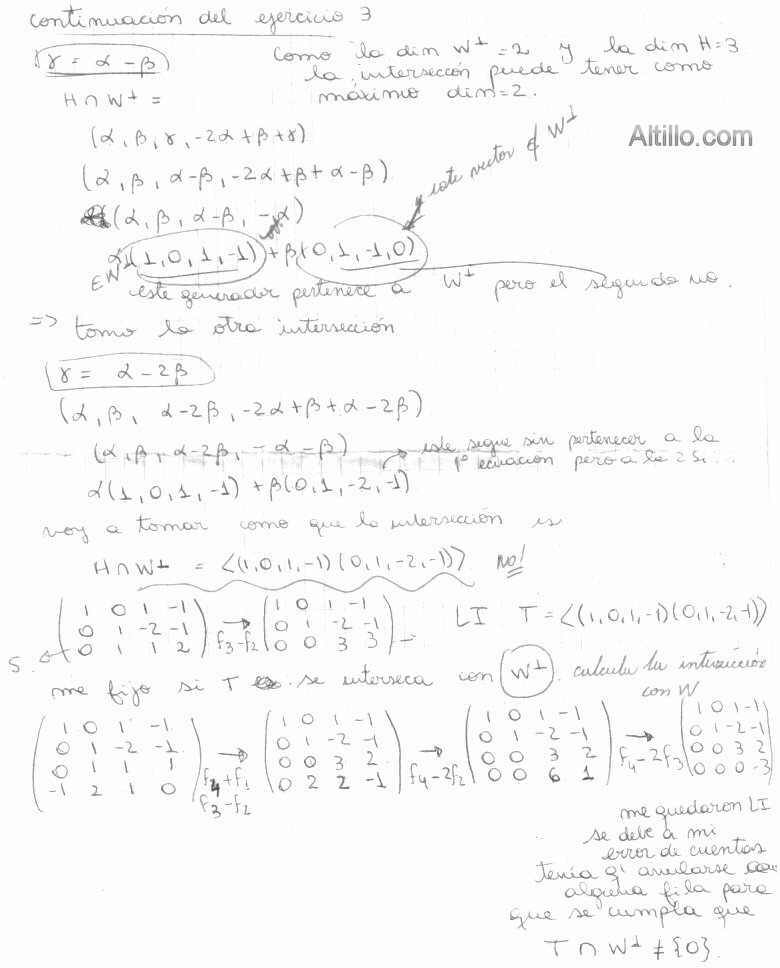 continuación del ejercicio 3
γ = α - β
Como la dim W⊥ = 2 y la dim H = 3
la intersección puede tener como
máximo dim = 2.
H ∩ W⊥ =
Altillo.com
(α, β, γ, -2α + β + γ)
(α, β, α-β, -2α + β + α - β)
este vector ∉ W⊥
(α, β, α-β, -α)
α(1, 0, 1, -1) + β(0, 1, -1, 0)
este generador pertenece a W⊥ pero el segundo no.
=> tomo la otra intersección
γ = α - 2β
(α, β, α-2β, -2α + β + α - 2β)
(α, β, α-2β, -α-β)
este sigue sin pertenecer a la
1º ecuación pero a la 2 si...
α(1, 0, 1, -1) + β(0, 1, -2, -1)
voy a tomar como que la intersección es
H ∩ W⊥ = <(1, 0, 1, -1)(0, 1, -2, -1)> no!
1 0 1 -1
0 1 -2 -1
0 1 1 2
f3 - f2
1 0 1 -1
0 1 -2 -1
0 0 3 3
LI T = <(1, 0, 1, -1)(0, 1, -2, -1)>
me fijo si T se interseca con W⊥ calcula la intersección
con W
1 0 1 -1
0 1 -2 -1
0 1 1 1
-1 2 1 0
f4 + f1
f3 - f2
1 0 1 -1
0 1 -2 -1
0 0 3 2
0 2 2 -1
f4 - 2f2
1 0 1 -1
0 1 -2 -1
0 0 3 2
0 0 6 1
f4 - 2f3
1 0 1 -1
0 1 -2 -1
0 0 3 2
0 0 0 -3
me quedaron LI
se debe a mi
error de cuentas
tenía q' anularse
alguna fila para
que se cumpla que
T ∩ W⊥ ≠ {0}.